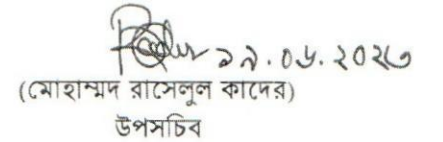 ১৯.০৬.২০২৩
(মোহাম্মদ রাসেলুল কাদের)
উপসচিব